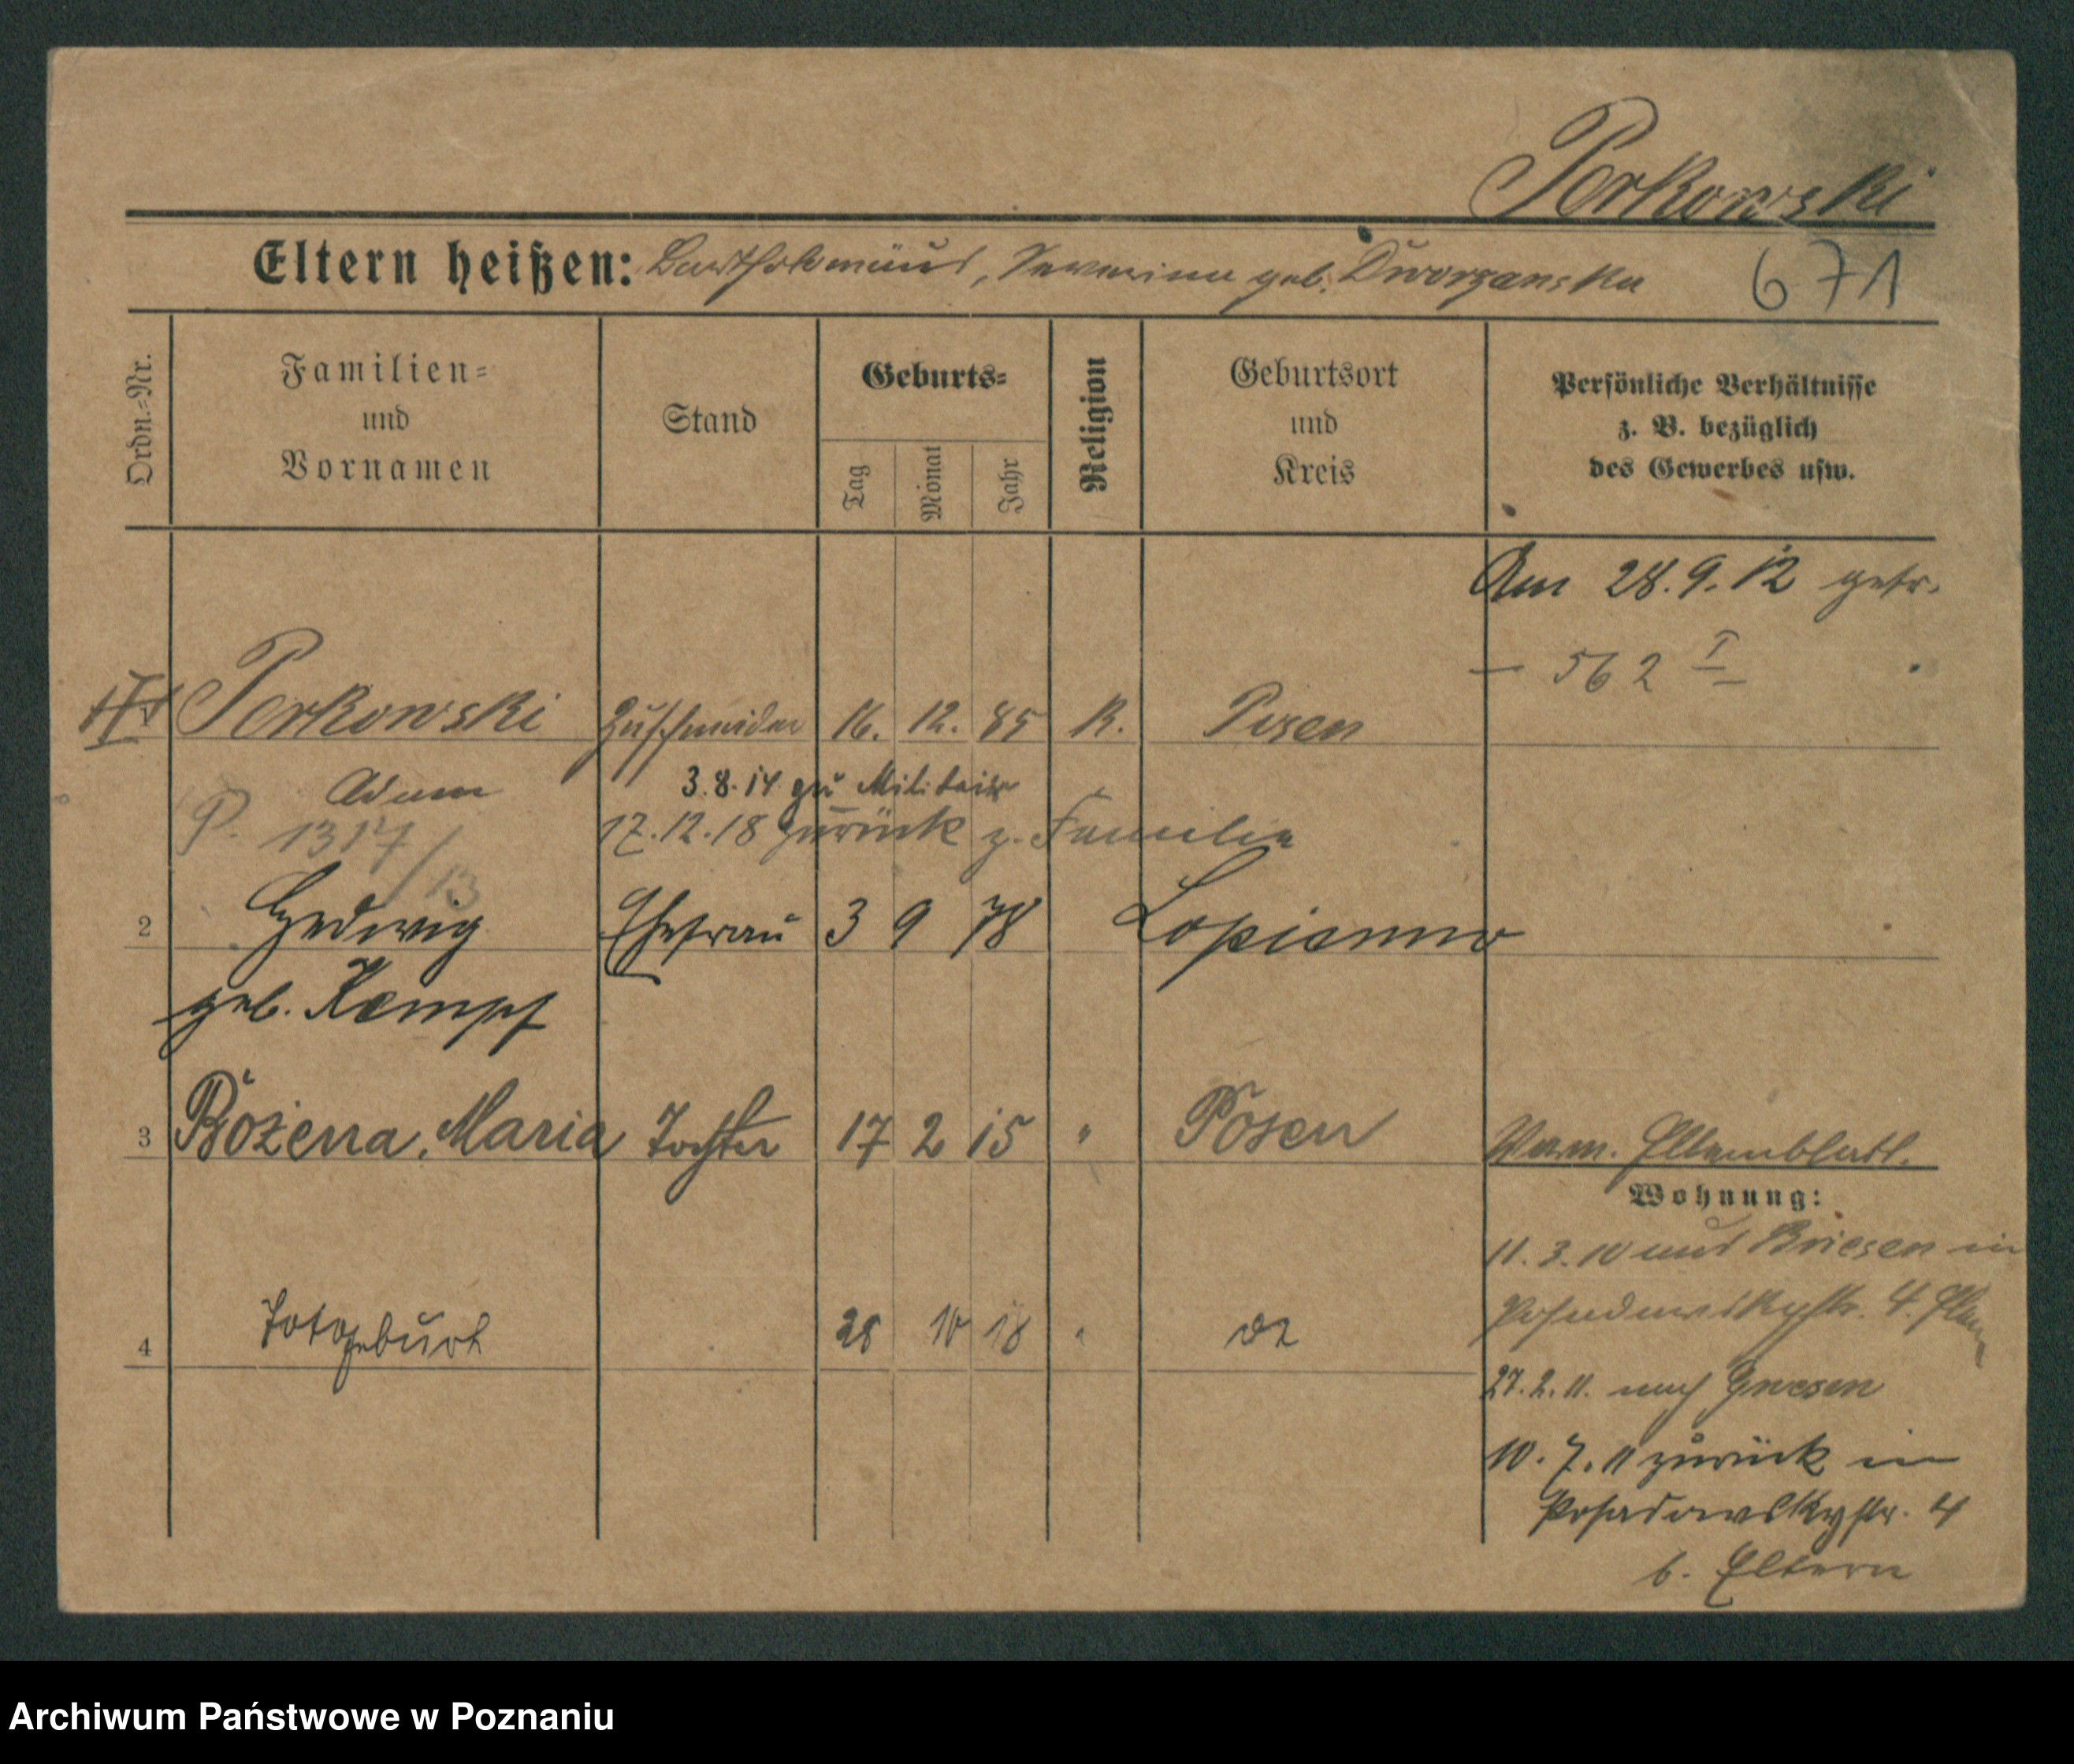 Perkowski
Eltern heißen: Bartholomäus, Severina geb. Dworzanska 671
Ordn.=Nr.
Familien=
und
Vornamen
Stand
Geburts=
Tag
Monat
Jahr
Religion
Geburtsort
und
Kreis
Persönliche Verhältnisse
z. B. bezüglich
des Gewerbes usw.
Am 28.9.12 getr.
– 562 I
Perkowski Zuschneider 16. 12. 85 K. Posen
Adam
3.8.14 zu Militair
P. 1317/13
17.12.18 zurück z. Familie
2 Hedwig Ehefrau 3 9 78 Lopienno
geb. Kempf
3 Bożena, Maria Tochter 17 2 15 " Posen
Verm. Elternblatt.
Wohnung:
11.3.10 aus Briesen in
Posadowskystr. 4. Eltern
4 Totgeburt 28 10 18 "
27.2.11. nach Gnesen
10.7.11 zurück in
Posadowskystr. 4
b. Eltern
Archiwum Państwowe w Poznaniu